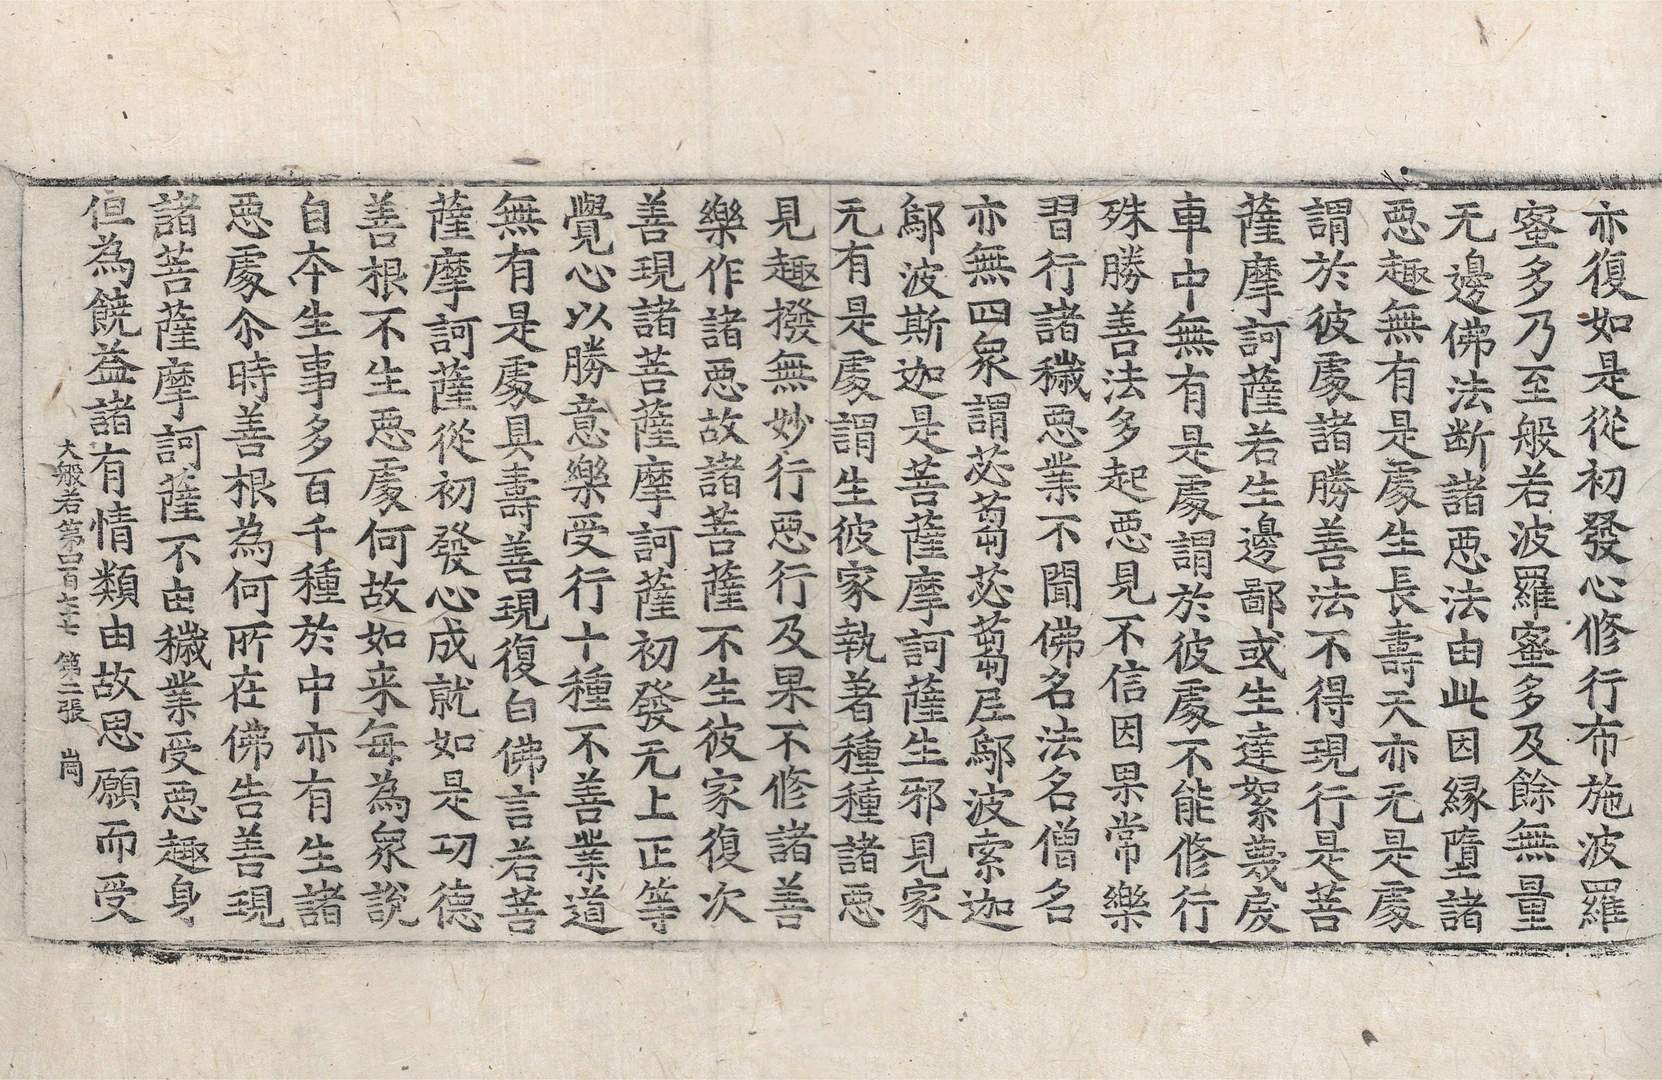 亦復如是從初發心修行布施波羅
蜜多乃至般若波羅蜜多及餘無量
无邊佛法断諸惡法由此因縁墮諸
惡趣無有是處生長壽天亦无是處
謂於彼處諸勝善法不得現行是菩
薩摩訶薩若生邊鄙或生達絮蔑戾
車中無有是處謂於彼處不能修行
殊勝善法多起惡見不信因果常樂
習行諸穢惡業不聞佛名法名僧名
亦無四衆謂苾蒭苾蒭尼鄔波索迦
鄔波斯迦是菩薩摩訶薩生邪見家
无有是處謂生彼家執著種種諸惡
見趣撥無妙行惡行及果不修諸善
樂作諸惡故諸菩薩不生彼家復次
善現諸菩薩摩訶薩初發无上正等
覺心以勝意樂受行十種不善業道
無有是處具壽善現復白佛言若菩
薩摩訶薩從初發心成就如是功德
善根不生惡處何故如来每為衆說
自本生事多百千種於中亦有生諸
惡處尒時善根為何所在佛告善現
諸菩薩摩訶薩不由穢業受惡趣身
但為饒益諸有情類由故思願而受
大般若第四百七十七 第二張 崗